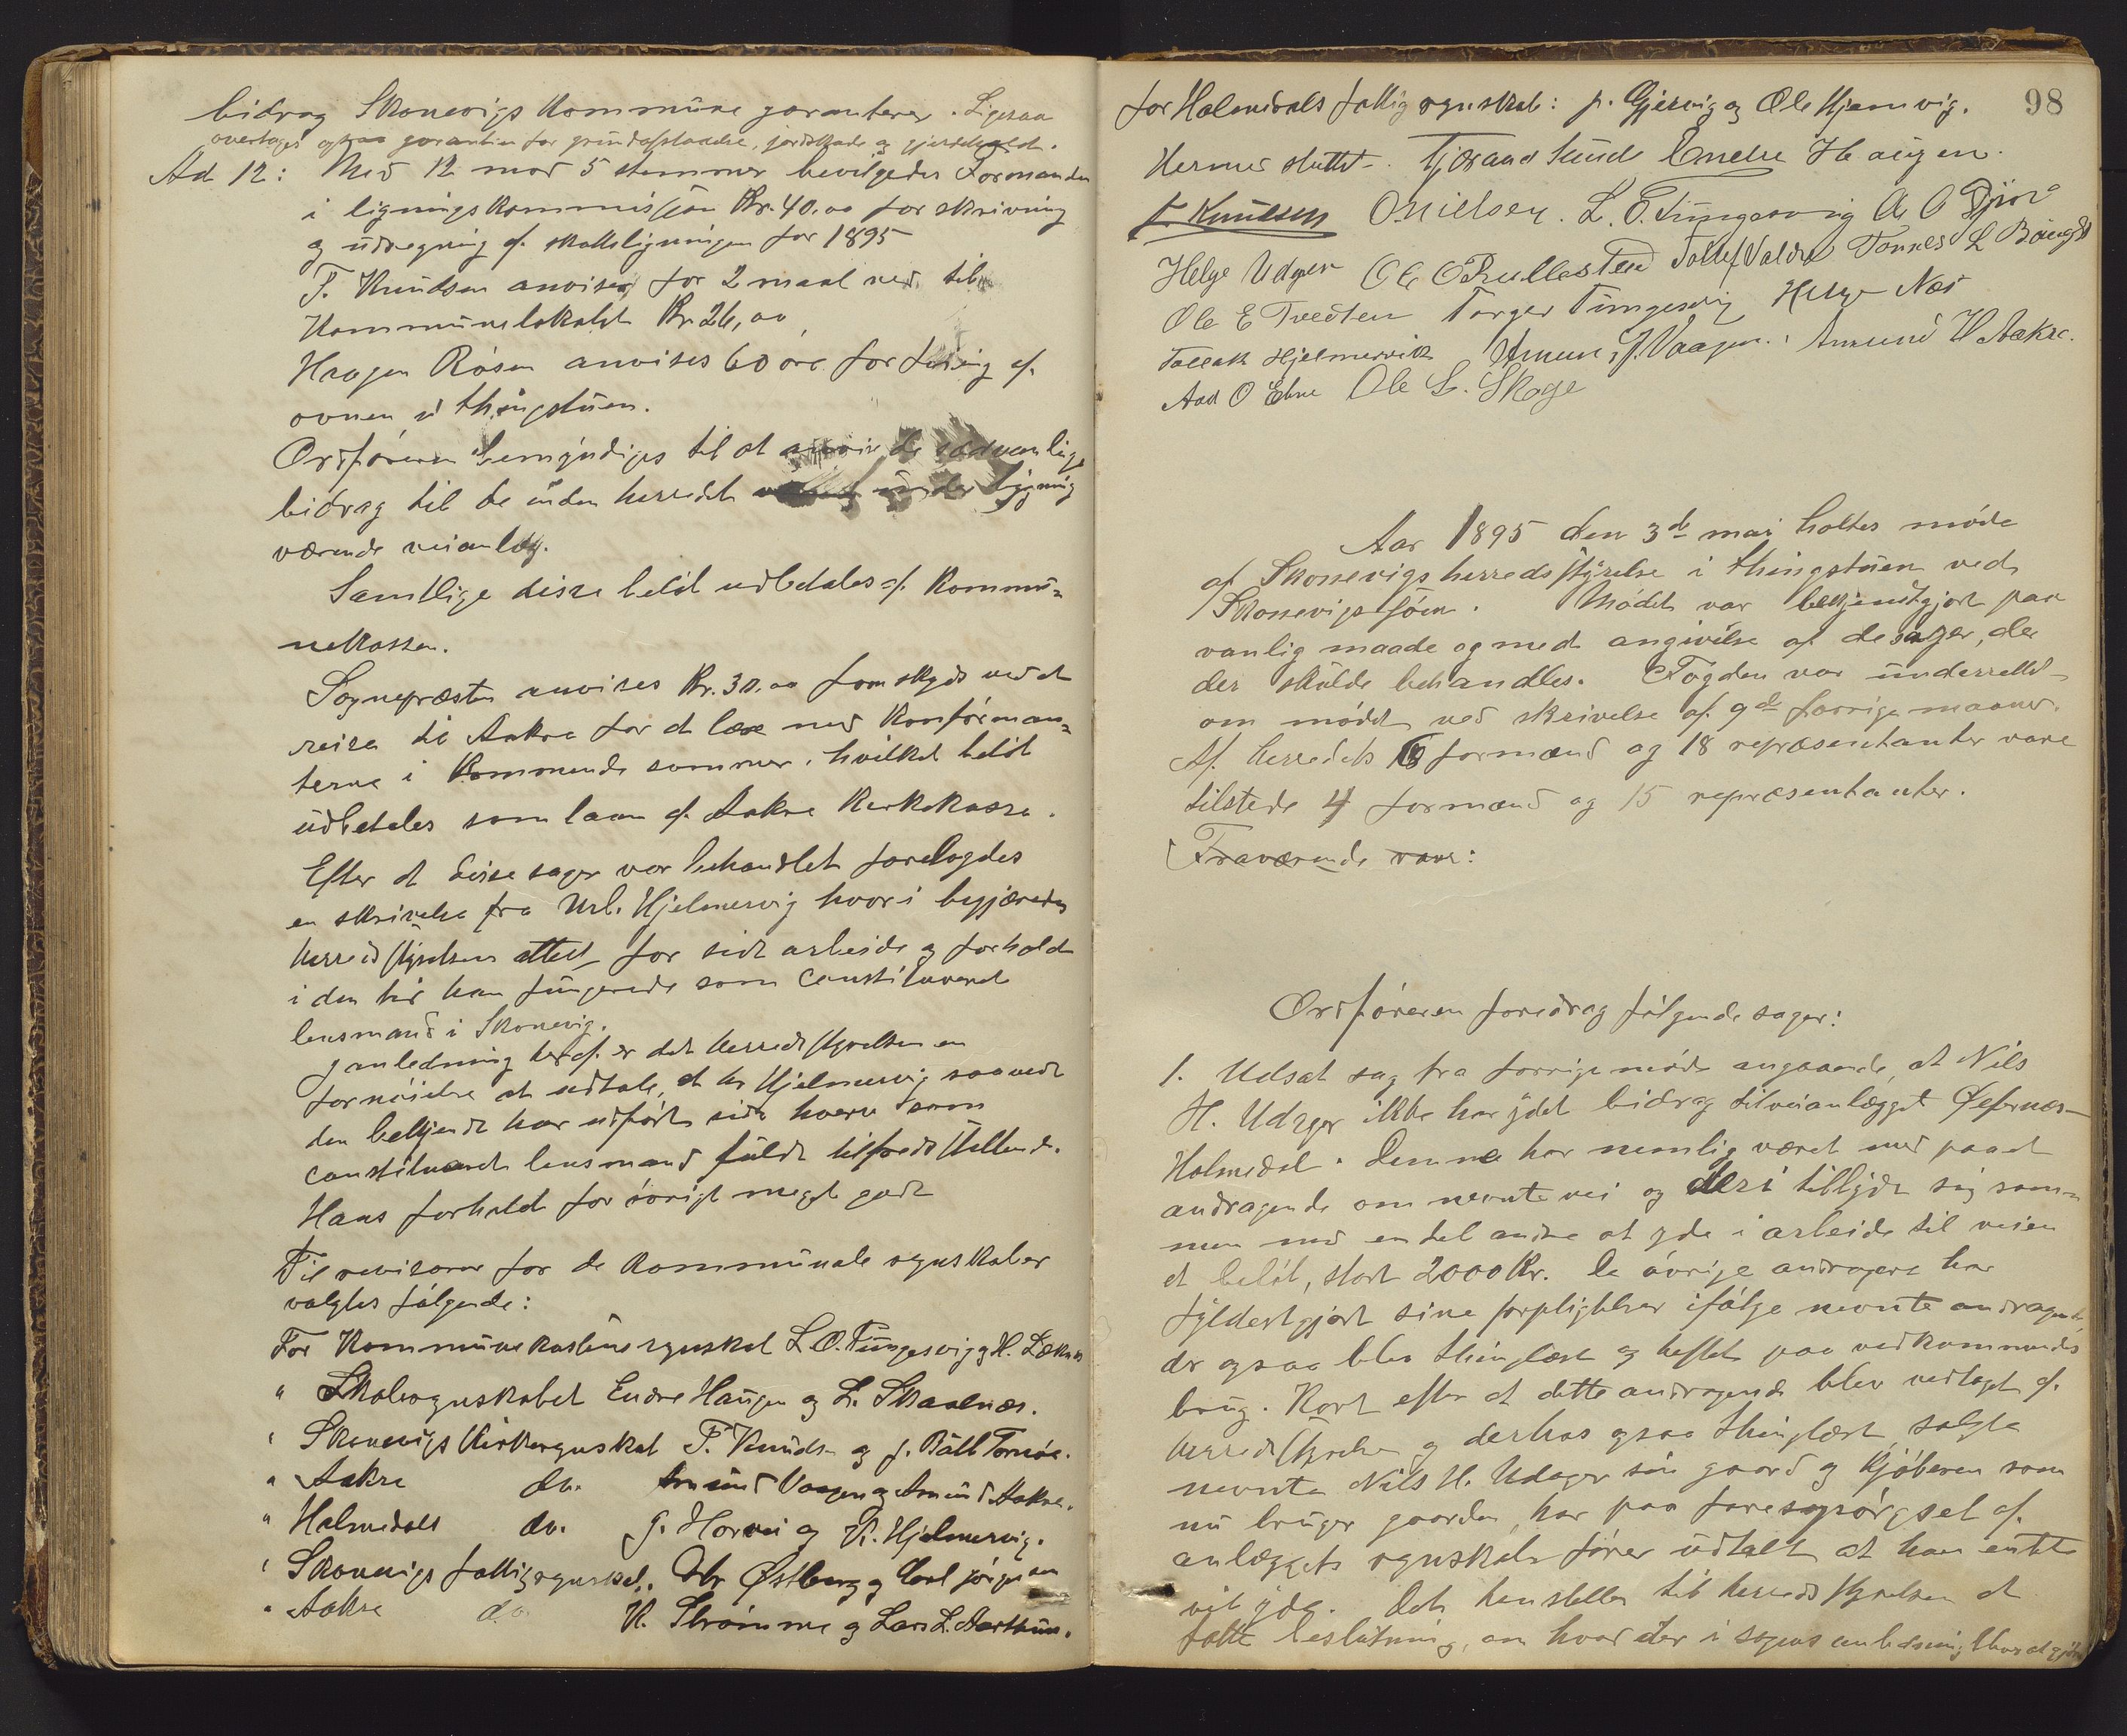 bidrag Skonevigs Kommune garanterer. Ligesaa
overtages ogsaa garantien for grundafstaaelse, jordskade og gjerdehold.
Ad 12: Med 12 mod 5 stemmer bevilgedes Formanden
i ligningskommissjon Kr. 40,00 for skrivning
og udregning af skatteligningen for 1895
F. Knudsen anvises for 2 maal ved til
Kommunelokalet Kr. 26,00
Haagen Rosen anvises 60 øre for af
ovnen i thingstuen.
Ordføreren bemyndiges til at anvise de sædvanlige
bidrag til de inden herredet under bygning
værende veianlæg.
Samtlige disse beløb udbetales af Kommu-
nekassen.
Sognepræsten anvises Kr. 30,00 som skyds ved at
reise til Aakre for at læse med Konfirman-
terne i Kommende sommer, hvilket beløb
udbetales som laan af Aakre Kirkekasse.
Efter at disse sager var behandlet forelagdes
en skrivelse fra Hjelmervig hvori begjæredes
Herredsstyrelsens attest for sit arbeide og forhold
i den tid han fungerede som Constitueret
lensmand i Skonevig.
J anledning heraf er det Herredsstyrelsen en
fornøielse at udtale, at hr Hjelmervig saavidt
den bekjendt har udført sit hverv som
constitueret lensmand fuldt tilfredsstillende.
Hans forhold for øvrigt meget godt
Til revisorer for de Kommunale regnskaber
valgtes følgende:
For Kommunekassens regnskab L. O. Tungesvig og H. Leknes
" Skoleregnskabet Endre Haugen og L. Skaalnes.
" Skonevigs Kirkeregnskab F. Knudsen og J. Bolt Tornøe.
" Aakre do. Amund Vaagen og Amund Aakre.
" Holmedals do. J. Horvei og K. Hjelmervig.
" Skonevigs fattigregnskab. Hr Østberg og Carl Jørgensen
" Aakre do K. Strømme og Lars L. Aarthun.
98
for Holmedals fattigregnskab: P. Gjervig og Ole Kjennvig.
Hermed sluttet. Tjeraand Sunde Endre Haugen
F. Knudsen O Nielsen. L. O. Tungesvig A O Bjør
Helge Udgjen Ole O Rullestad Tollef Valdre Tonnes L Bouge
Ole E Tvedten Torger Tungesvig Helge Næs
Tollak Hjelmervik Amund J. Vaagen. Amund H Aakre.
Aad O Ebne Ole L. Skoge
Aar 1895 den 3de mai holtes møde
af Skonevigs herredsstyrelse i thingstuen ved
Skonevigsjøen. Mødet var bekjendtgjort paa
vanlig maade og med angivelse af de sager, der
der skulde behandles. Fogden var underrettet
om mødet ved skrivelse af 9de forrige maaned.
Af herredets 6 formænd og 18 repræsentanter vare
tilstede 4 formænd og 15 repræsentanter.
Fraværende vare:
Ordføreren foredrog følgende sager:
1. Udsat sag fra forrige møde angaaende, at Nils
H. Udager ikke har ydet bidrag til veianlægget Øefernæs-
Holmedal. Denne har nemlig været med paa et
andragende om nevnte vei og deri tilbydt sig sam-
men med en del andre at yde i arbeide til veien
et beløb, stort 2000 Kr. De øvrige andragere har
fyldestgjort sine forpligtelser ifølge nevnte andragende,
der ogsaa blev thinglæst og heftet paa vedkommendes
brug. Kort efter at dette andragende blev vedtaget af
Herredsstyrelsen og derhos ogsaa thinglæst, solgte
nevnte Nils H. Udager sin gaard og Kjøberen som
nu bruger gaarden, har paa foresspørgsel af
anlæggets regnskabsfører udtalt at han intet
vil yde. Det henstilles til herredsstyrelsen at
fatte beslutning, om hvad der i sagens anledning bliver at gjøre